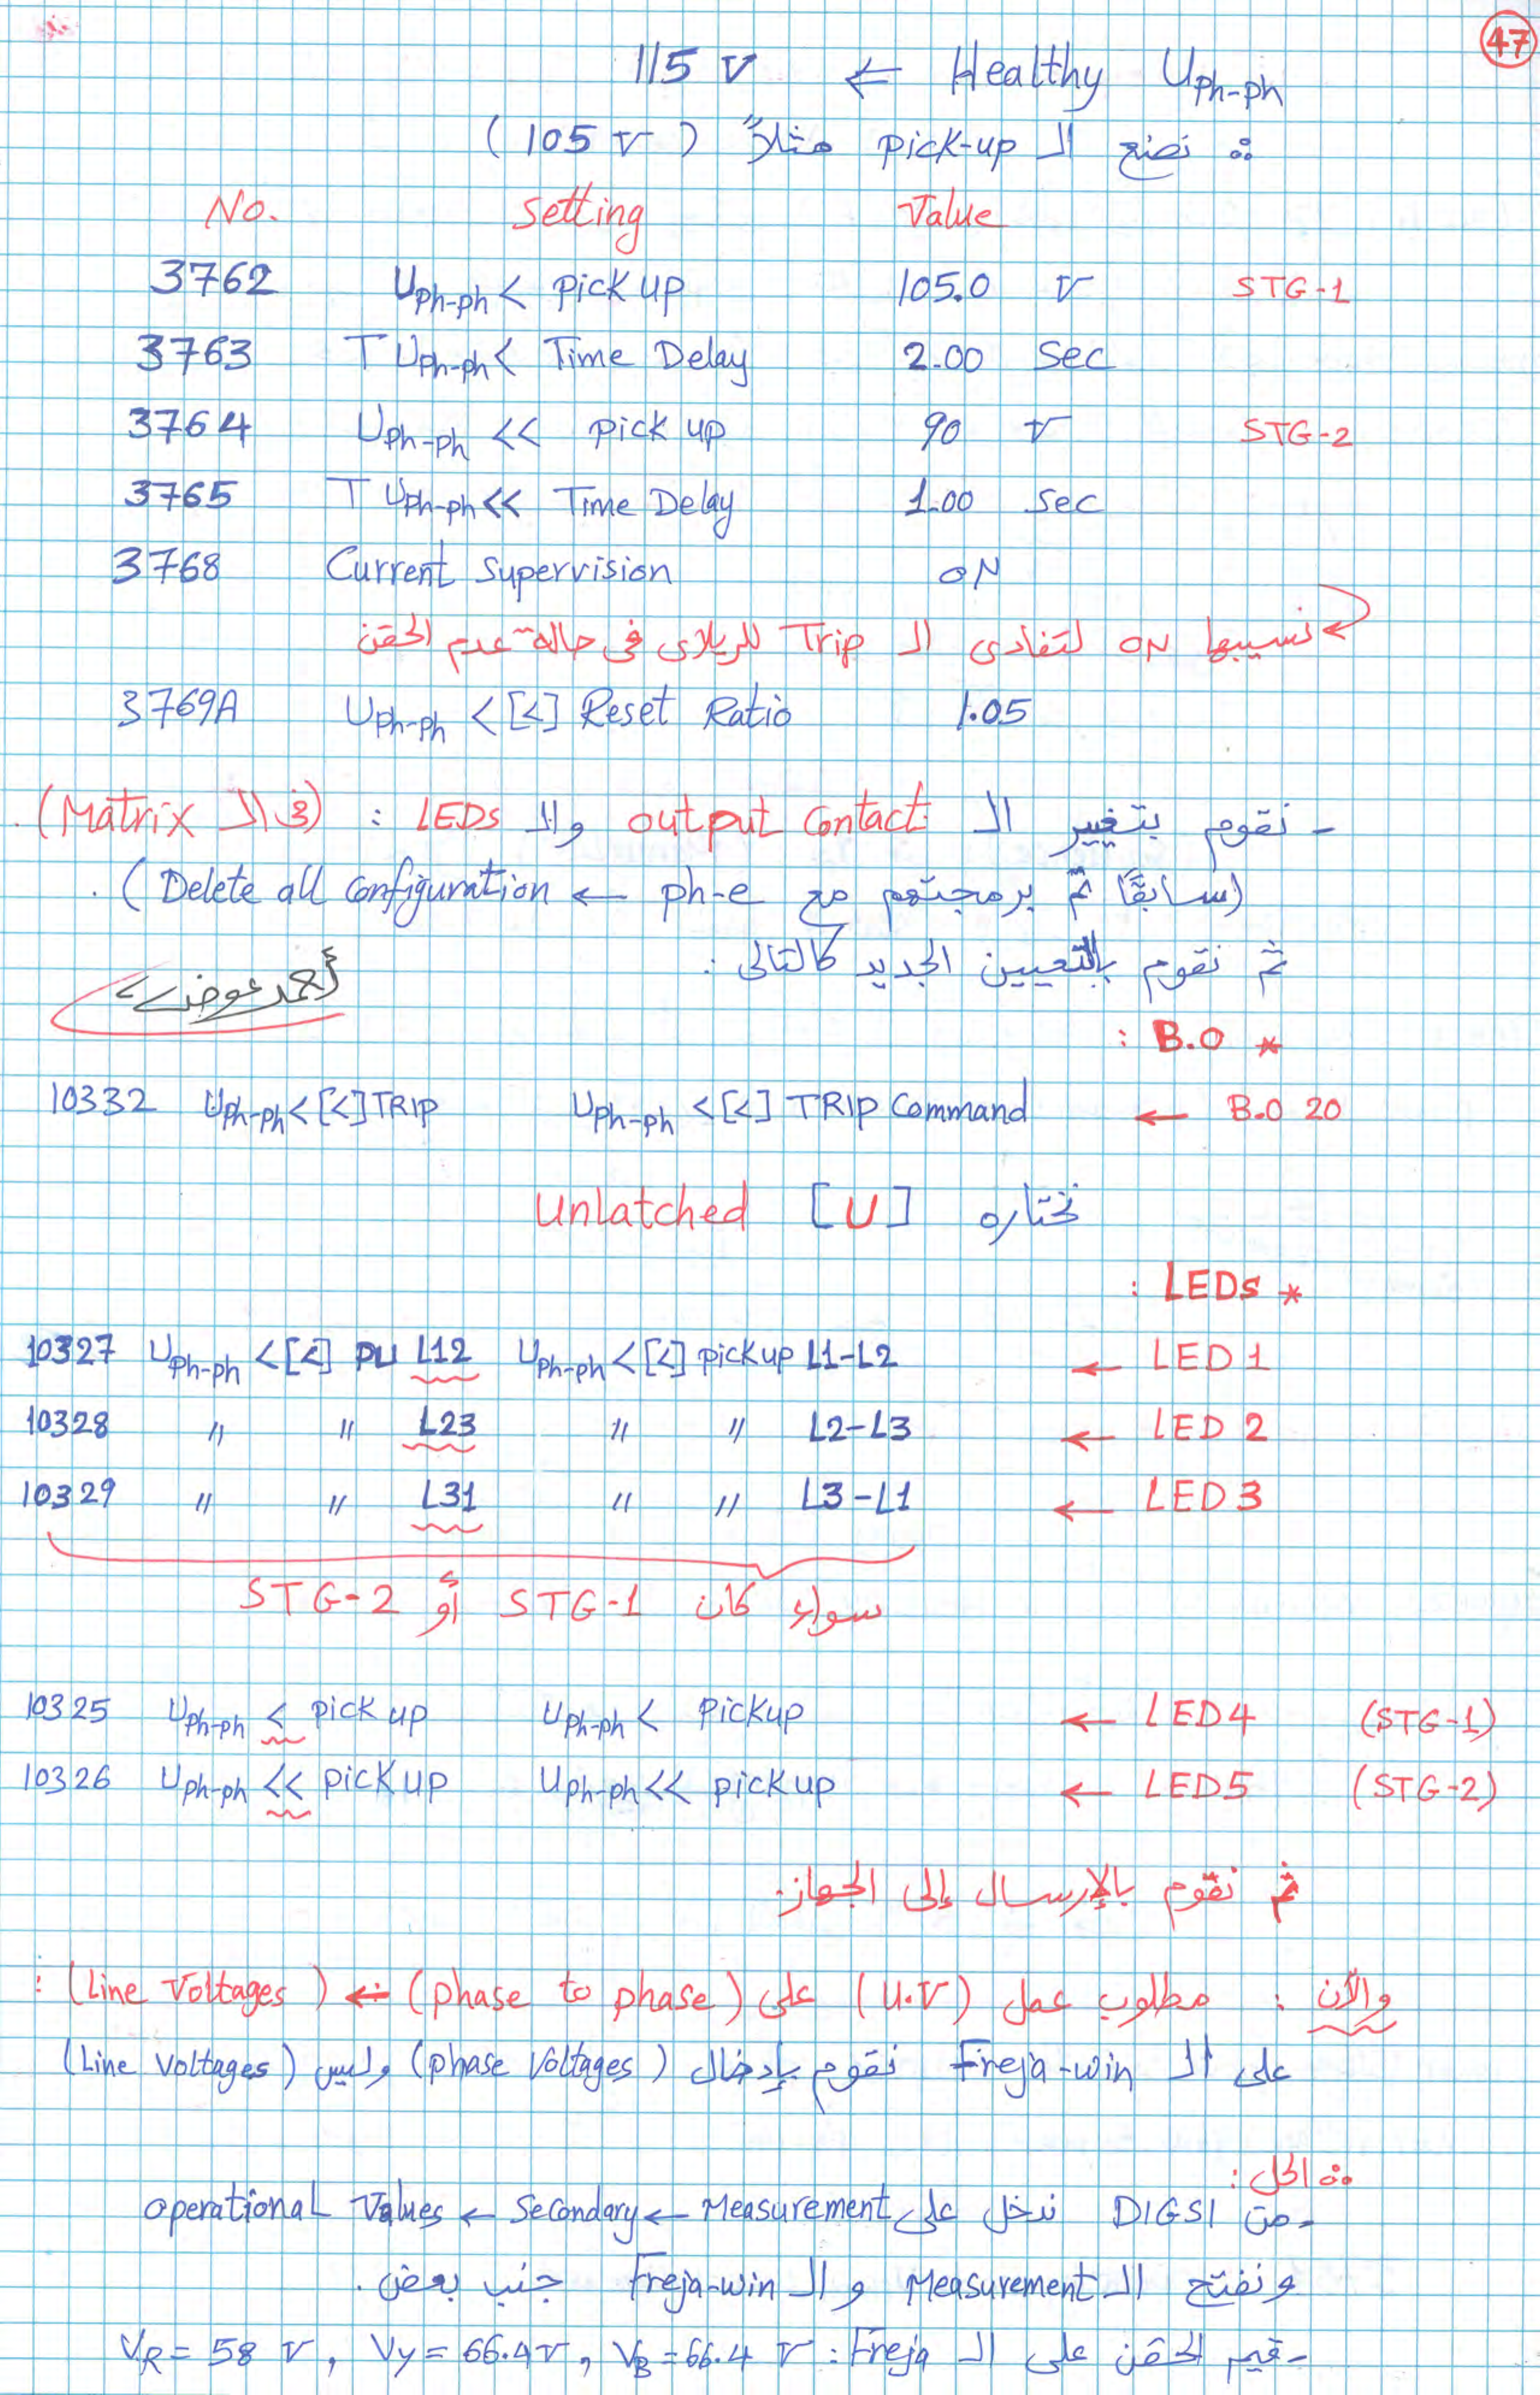 47
115 V ← Healthy Uph-ph
∴ نضع الـ pick-up مثلاً (105 V)
No. Setting Value
3762 Uph-ph< pick up 105.0 V STG-1
3763 T Uph-ph< Time Delay 2.00 Sec
3764 Uph-ph << pick up 90 V STG-2
3765 T Uph-ph<< Time Delay 1.00 Sec
3768 Current Supervision ON
نسيبها ON لتفادى الـ Trip للريلاى فى حالة عدم الحقن
3769A Uph-ph <[<] Reset Ratio 1.05
- نقوم بتغيير الـ output Contact والـ LEDs : (فى الـ Matrix).
(سابقاً تم برمجتهم مع ph-e ← Delete all Configuration).
ثم نقوم بالتعيين الجديد كالتالى :
أحمد عوض
* B.O :
10332 Uph-ph<[<]TRIP Uph-ph <[<] TRIP Command ← B.O 20
نختاره [U] Unlatched
* LEDs :
10327 Uph-ph <[<] PU L12 Uph-ph<[<] pickup L1-L2 ← LED1
10328 〃 〃 L23 〃 〃 L2-L3 ← LED 2
10329 〃 〃 L31 〃 〃 L3-L1 ← LED3
سواء كان STG-1 أو STG-2
10325 Uph-ph < pick up Uph-ph < Pickup ← LED4 (STG-1)
10326 Uph-ph << pick up Uph-ph<< pickup ← LED5 (STG-2)
ثم نقوم بالإرسال إلى الجهاز.
والآن : مطلوب عمل (U.V) على (phase to phase) ← (Line Voltages) :
على الـ Freja-win نقوم بإدخال (phase Voltages) وليس (Line Voltages)
∴ الحل :
- من DIGSI ندخل على Measurement ← Secondary ← Operational Values
ونفتح الـ Measurement و الـ Freja-win جنب بعض.
- قيم الحقن على الـ Freja : VR = 58 V, VY = 66.4 V, VB = 66.4 V